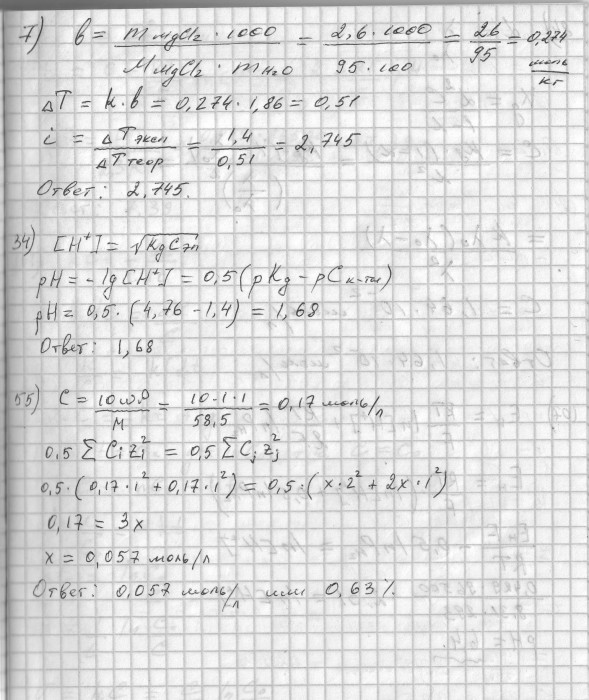 7) b = m MgCl2 · 1000 / M MgCl2 · m H2O = 2,6 · 1000 / 95 · 100 = 26 / 95 = 0,274 моль/кг
ΔT = k · b = 0,274 · 1,86 = 0,51
i = ΔTэксп / ΔTтеор = 1,4 / 0,51 = 2,745
Ответ: 2,745.
34) [H⁺] = √KдCэл
pH = -lg[H⁺] = 0,5 (pKд - pCк-ты)
pH = 0,5 · (4,76 - 1,4) = 1,68
Ответ: 1,68
55) C = 10ωρ / M = 10 · 1 · 1 / 58,5 = 0,17 моль/л
0,5 Σ Cᵢzᵢ² = 0,5 Σ Cⱼzⱼ²
0,5 · (0,17 · 1² + 0,17 · 1²) = 0,5 · (x · 2² + 2x · 1²)
0,17 = 3x
x = 0,057 моль/л
Ответ: 0,057 моль/л или 0,63%